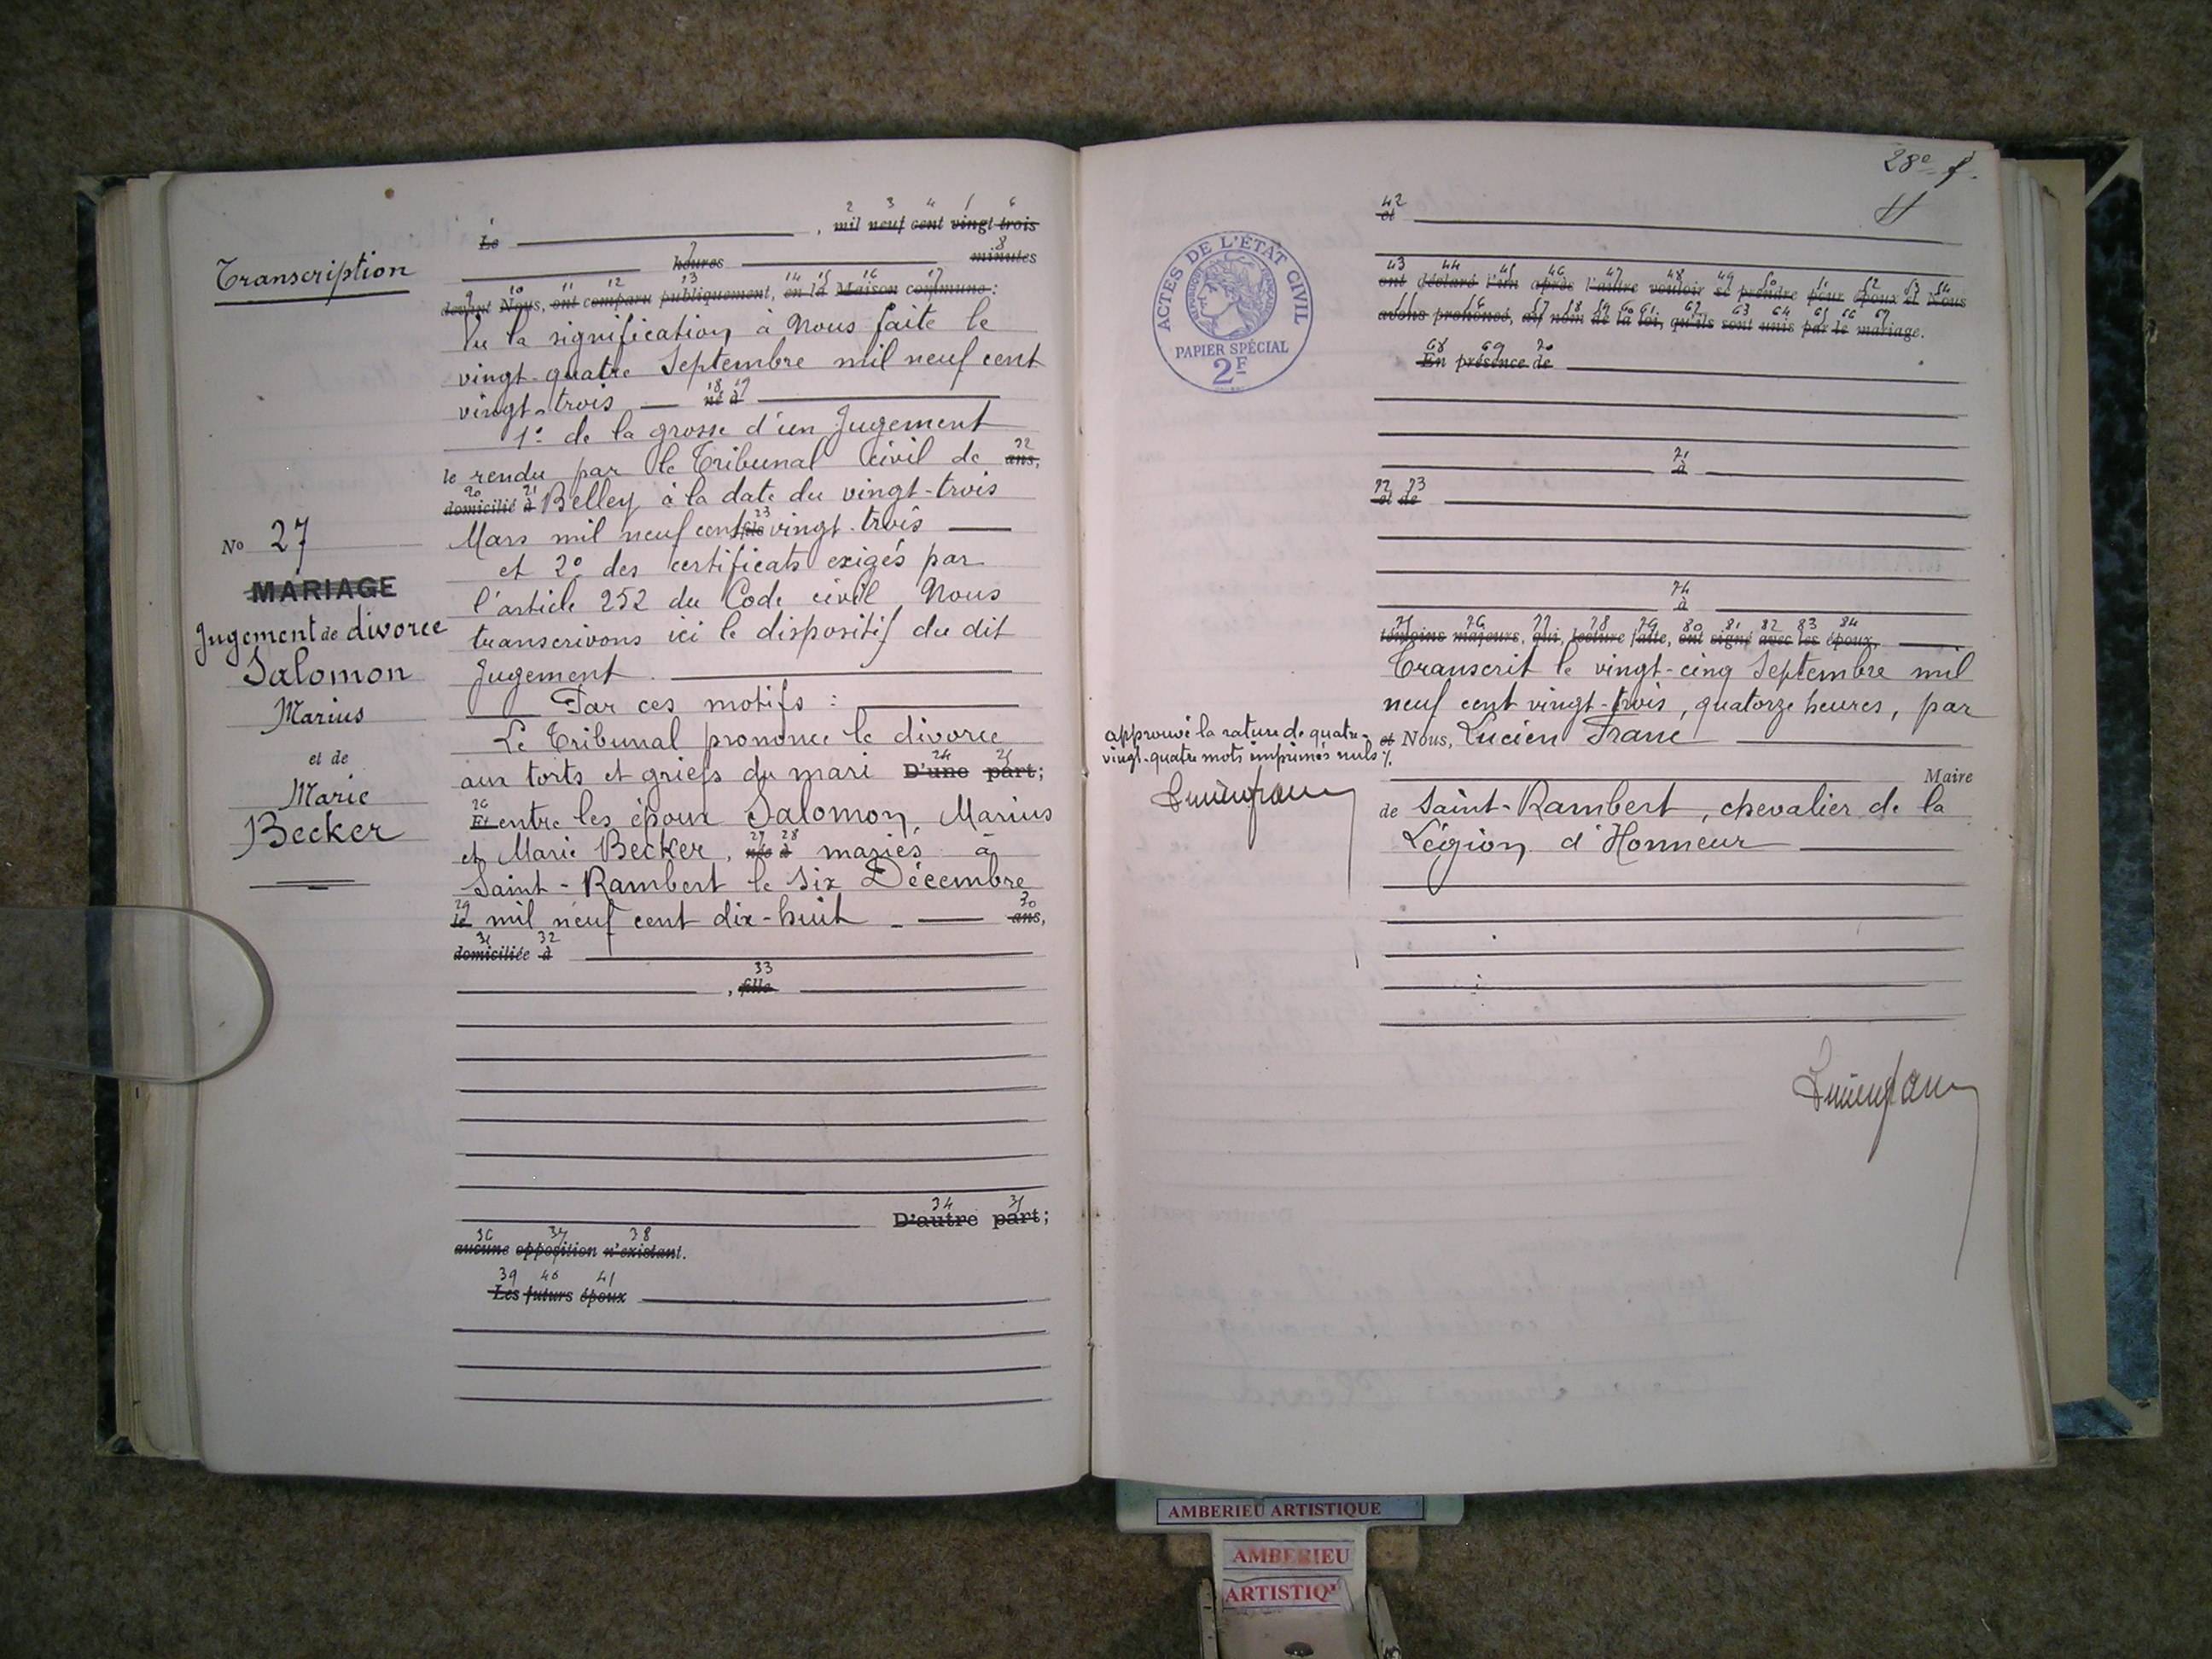 Transcription
No 27
MARIAGE
Jugement de divorce
Salomon
Marius
et de
Marie
Becker
Le , mil neuf cent vingt trois
heures minutes
devant Nous, ont comparu publiquement, en la Maison commune :
Vu la signification à Nous faite le
vingt-quatre Septembre mil neuf cent
vingt-trois né à
1º de la grosse d'un Jugement
le rendu par le Tribunal Civil de ans,
domicilié à Belley à la date du vingt-trois
Mars mil neuf cent fils vingt-trois
et 2º des certificats exigés par
l'article 252 du Code civil Nous
transcrivons ici le dispositif du dit
Jugement
Par ces motifs :
Le Tribunal prononce le divorce
aux torts et griefs du mari D'une part;
Et entre les époux Salomon, Marius
et Marie Becker, née à mariés à
Saint-Rambert le six Décembre
le mil neuf cent dix-huit ans,
domiciliée à
, fille
D'autre part;
aucune opposition n'existant.
Les futurs époux
28e f.
ACTES DE L'ÉTAT CIVIL
PAPIER SPÉCIAL
2F
et
ont déclaré l'un après l'autre vouloir se prendre pour époux et Nous
avons prononcé, au nom de la loi, qu'ils sont unis par le mariage.
En présence de
à
et de
à
témoins majeurs, qui, lecture faite, ont signé avec les époux,
Transcrit le vingt-cinq Septembre mil
neuf cent vingt-trois, quatorze heures, par
et Nous, Lucien Franc
Maire
de Saint-Rambert, chevalier de la
Légion d'Honneur
approuvé la rature de quatre-
vingt-quatre mots imprimés nuls
AMBERIEU ARTISTIQUE
AMBERIEU
ARTISTIQ